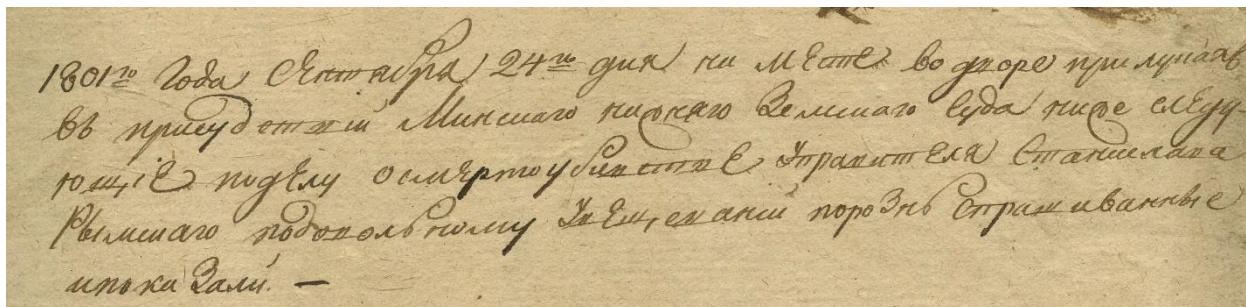 1801го Года Сентабра 24го дня на месте во дворе прилукаав
въ присудствии Минскаго нижняго Земскаго Суда ниже следу-
ющие по делу о смертоубивстве Управителя Станислава
Рымскаго по довольному Увещеванию порознь Спрашиванные
и показали. —